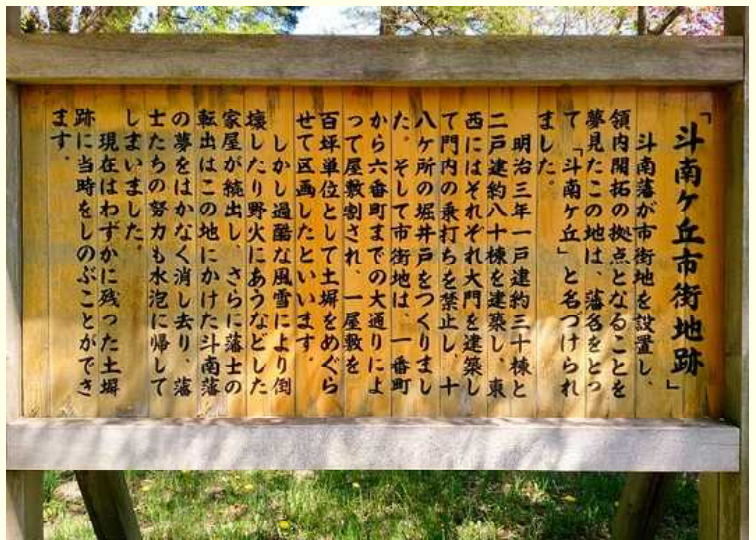 「斗南ケ丘市街地跡」
斗南藩が市街地を設置し、
領内開拓の拠点となることを
夢見たこの地は、藩名をとっ
て「斗南ケ丘」と名づけられ
ました。
明治三年一戸建約三十棟と
二戸建約八十棟を建築し、東
西にはそれぞれ大門を建築し
て門内の乗打ちを禁止し、十
八ケ所の堀井戸をつくりまし
た。そして市街地は、一番町
から六番町までの大通りによ
って屋敷割され、一屋敷を
百坪単位として土塀をめぐら
せて区画したといいます。
しかし過酷な風雪により倒
壊したり野火にあうなどした
家屋が続出し、さらに藩士の
転出はこの地にかけた斗南藩
の夢をはかなく消し去り、藩
士たちの努力も水泡に帰して
しまいました。
現在はわずかに残った土塀
跡に当時をしのぶことができ
ます。